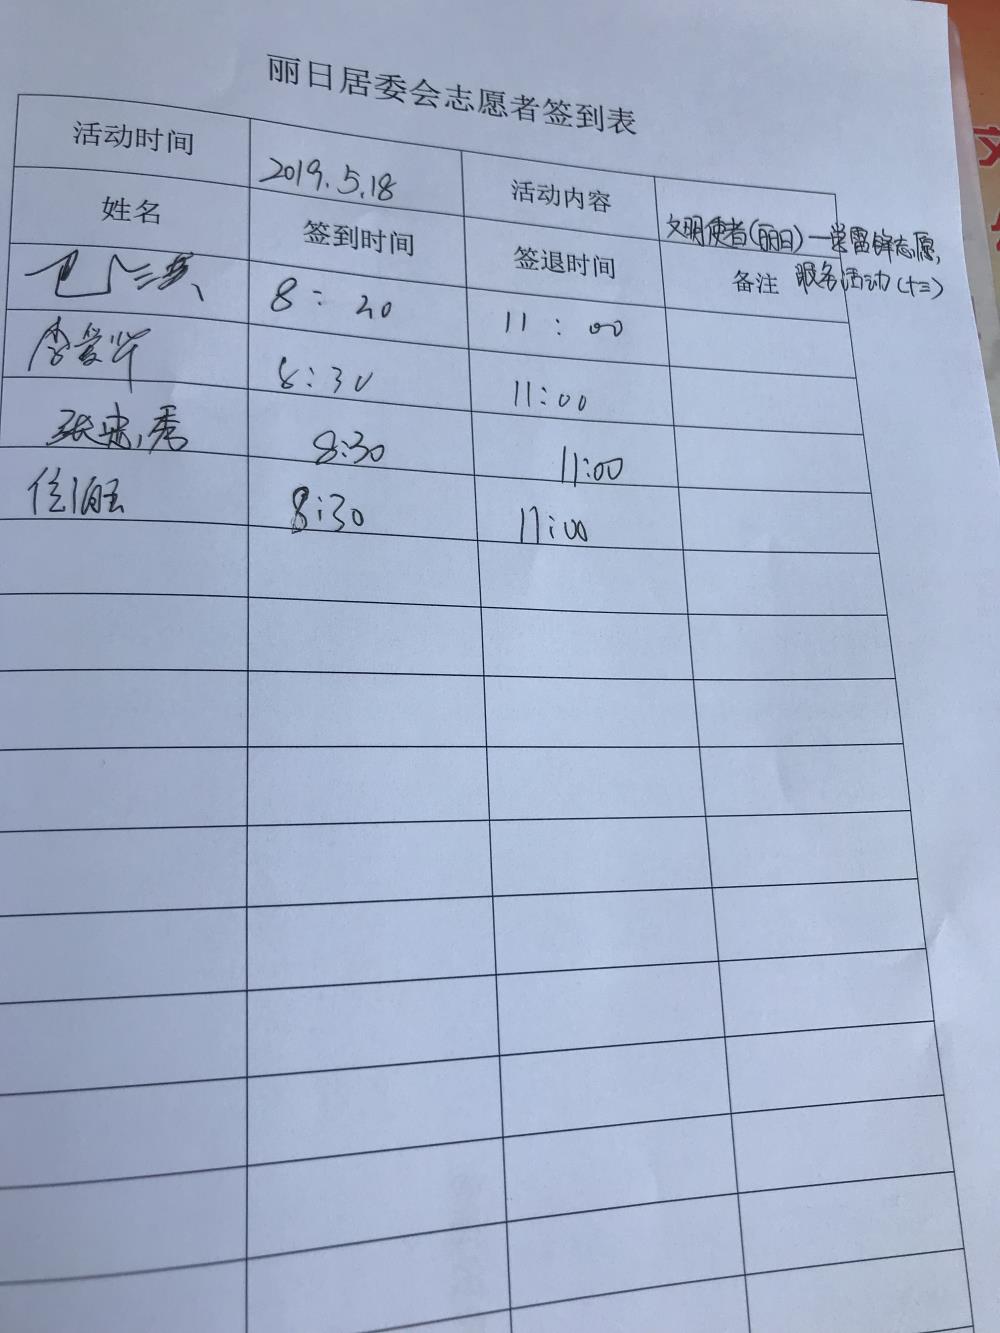 丽日居委会志愿者签到表
活动时间 2019.5.18 活动内容 文明使者(丽日)—学雷锋志愿服务活动(十三)
姓名 签到时间 签退时间 备注
8:20 11:00
李爱华 8:30 11:00
张忠秀 8:30 11:00
8:30 11:00
文